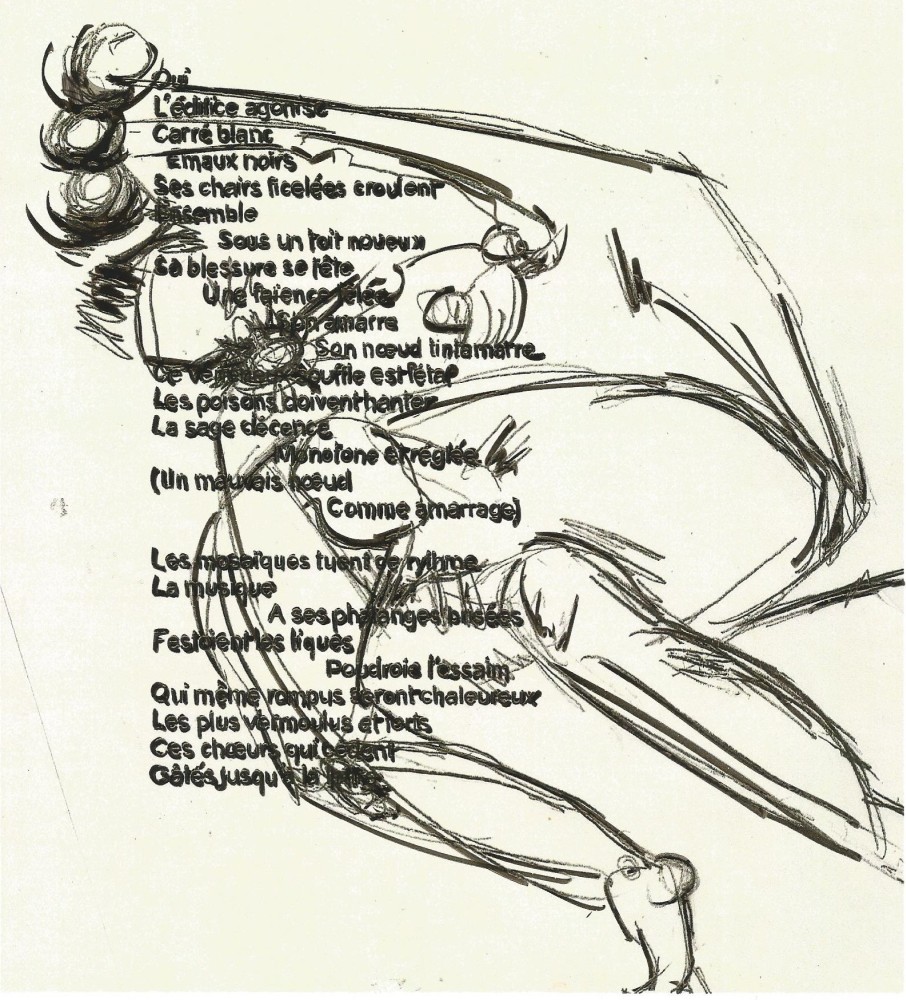 Oui
L'édifice agonise
Carré blanc
Emaux noirs
Ses chairs ficelées croulent
Ensemble
Sous un toit noueux
Sa blessure se fête
Une faïence fêlée
A son amarre
Son nœud tintamarre
Ce souffle est fétal
Les poisons doivent hanter
La sage décence
Monotone et réglée
(Un mauvais nœud
Comme amarrage)
Les mosaïques tuent de rythme
La musique
A ses phalanges brisées
Festoient les liqués
Poudroie l'essaim
Qui même rompus seront chaleureux
Les plus vermoulus et forts
Ces chœurs qui cèdent
Gâtés jusqu'à la